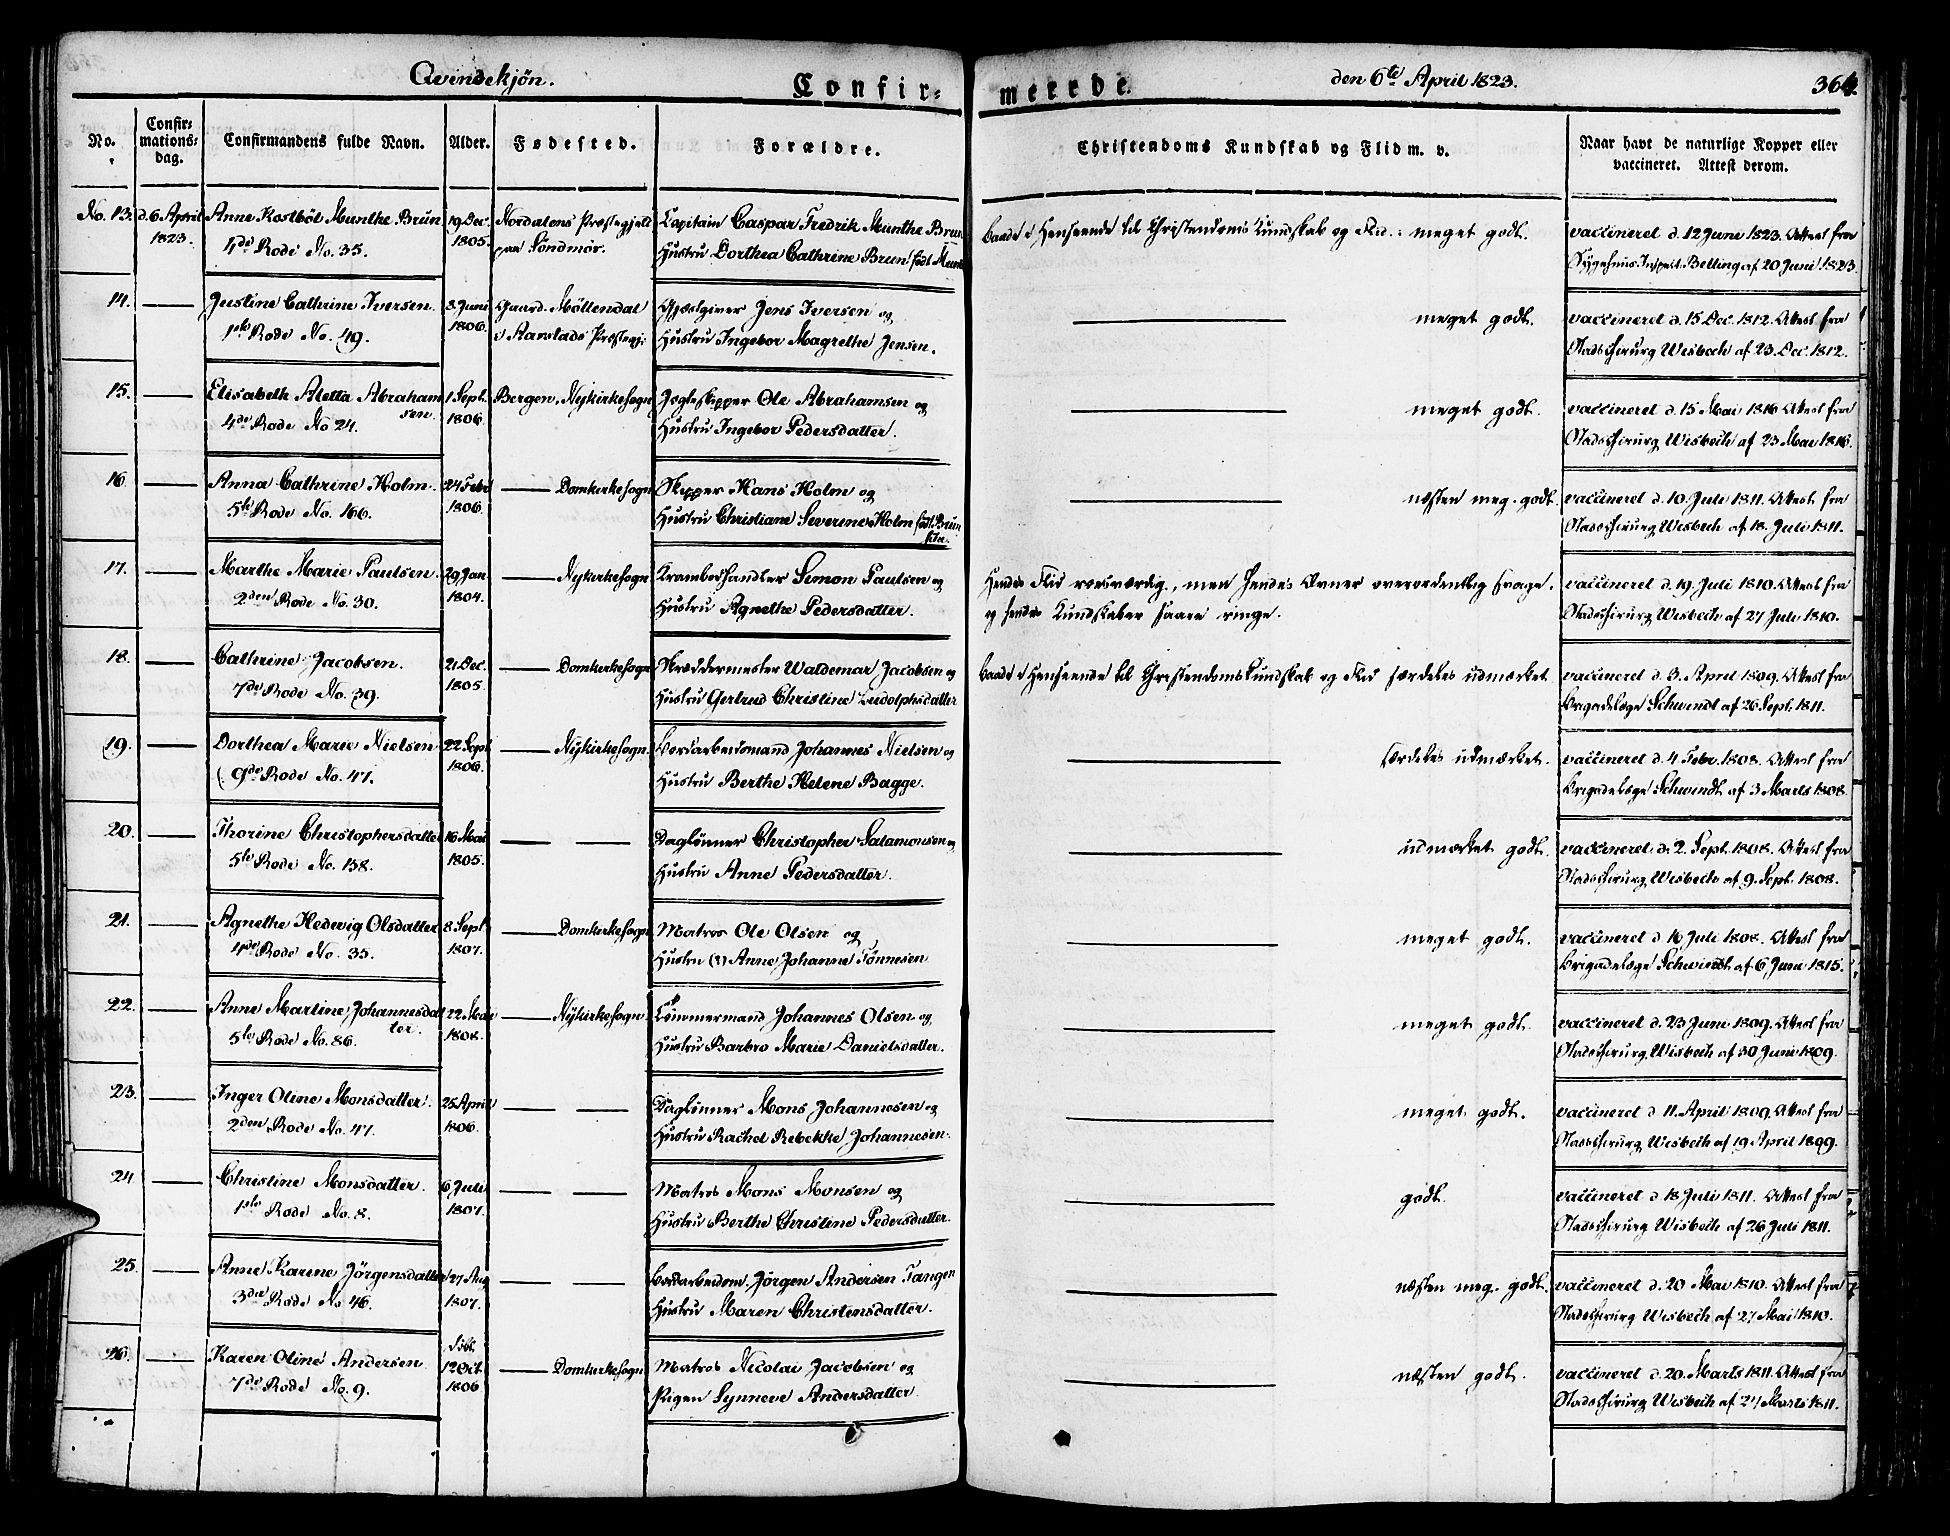 Qvindekjøn.
Confir=
meerde.
den 6te April 1823.
364.
No.
Confir=
mations=
dag.
Confirmandens fulde Navn.
Alder.
Fødested.
Forældre.
Christendoms Kundskab og Flid m. v.
Naar havt de naturlige Kopper eller
vaccineret. Attest derom.
No. 13. d. 6 April Anne Kostbøl Munthe Brun 19 Dec. Nordalens Præstegjeld Capitain Caspar Fredrik Munthe Brun baade i Henseende til Christendoms Kundskab og Flid: meget godt. vaccineret d. 12 Juni 1823. Attest fra
1823. 4de Rode No. 35. 1805. paa Söndmör. Hustru Dorthea Cathrine Brun født Munthe Sygehus-Inspect. Belling af 20 Juni 1823.
14. Justine Cathrine Iversen. 3. Juni Gaard. Möllendal Gjæstgiver Jens Iversen og meget godt. vaccineret d. 15 Dec. 1812. Attest fra
1ste Rode No. 49. 1806. i Aarstads Præstegj: Hustru Ingebor Magrethe Jensen. Stadschirurg Wisbech af 23. Dec. 1812.
15. Elisabeth Aletta Abraham 1 Sept. Bergen, Nykirkesogn Jægteskipper Ole Abrahamsen og meget godt. vaccineret d. 15 Mai 1816 Attest fra
sen.
4de Rode No 24. 1806. Hustru Ingebor Pedersdatter. Stadschirurg Wisbech af 23 Mai 1816.
16. Anna Cathrine Holm. 24 Febr Domkirkesogn Skipper Hans Holm og næsten meg. godt. vaccineret d. 10. Juli 1811. Attest fra
5te Rode No. 166. 1806. Hustru Christiane Severine Holm født Brun Stadschirurg Wisbech af 18. Juli 1811.
17. Marthe Marie Paulsen. 29 Jan. Nykirkesogn Krambodhandler Simon Paulsen og Hendes Flid roesværdig, men hendes Evner overordentlig svage, vaccineret d. 19. Juli 1810. Attest fra
2den Rode No. 30. 1804. Hustru Agnethe Pedersdatter. og hendes Kundskaber saare ringe. Stadschirurg Wisbech af 27 Juli 1810.
18. Cathrine Jacobsen. 21 Dec. Domkirkesogn Skræddermester Waldemar Jacobsen og baade i Henseende til Christendomskundskab og Flid særdeles udmærket vaccineret d. 3. April 1809. Attest fra
7de Rode No. 39. 1805. Hustru Gertrud Christine Ludolphsdatter Brigadelæge Schwindt af 26 Sept. 1811.
19. Dorthea Marie Nielsen 22 Sept Nykirkesogn. Bordarbeidsmand Johannes Nielsen og særdeles udmærket. vaccineret d. 4 Febr. 1808. Attest fra
9de Rode No. 47. 1806. Hustru Berthe Helene Bagge. Brigadelæge Schwindt af 3 Marts 1808.
20. Thorine Christophersdatter 16 Mai Daglönner Christopher Salamonsen og udmærket godt. vaccineret d. 2. Sept. 1808. Attest fra
5te Rode No. 138. 1805. Hustru Anne Pedersdatter. Stadschirurg Wisbech af 9. Sept. 1808.
21. Agnethe Hedewig Olsdatter 8 Sept. Domkirkesogn Matros Ole Olsen og meget godt. vaccineret d 16 Juli 1808. Attest fra
4de Rode No. 35. 1807. Hustru (?) Anne Johanne Tönnesen Brigadelæge Schwindt af 6 Juni 1815.
22. Anne Martine Johannesdat 22. Mai Nykirkesogn. Tömmermand Johannes Olsen og meget godt. vaccineret d. 23 Juni 1809. Attest fra
ter.
5te Rode No. 86. 1808. Hustru Barbro Marie Danielsdatter. Stadschirurg Wisbech af 30 Juni 1809.
23. Inger Oline Monsdatter. 25 April Daglönner Mons Johannesen og meget godt. vaccineret d. 11. April 1809. Attest fra
2den Rode No. 47. 1806. Hustru Rachel Rebekke Johannesen. Stadschirurg Wisbech af 19 April 1899.
24 Christine Monsdatter. 6 Juli Matros Mons Monsen og godt. vaccineret d 18 Juli 1811. Attest fra
1ste Rode No. 8. 1807. Hustru Berthe Christine Pedersdatter. Stadschirurg Wisbech af 26 Juli 1811.
25. Anne Karine Jörgensdatter 27 Aug Bordarbeidsm. Jörgen Andersen Tangen næsten meg. godt. vaccineret d. 20 Mai 1810. Attest fra
3die Rode No 46. 1807. Hustru Maren Christensdatter. Stadschirurg Wisbech af 27 Mai 1810.
26. Karen Oline Andersen døbt. 12 Oct. Domkirkesogn Matros Nicolai Jacobsen og næsten godt. vaccineret d. 20. Marts 1811. Attest fra
7de Rode No. 9. 1806 Pigen Synneve Andersdatter Stadschirurg Wisbech af 27 Marts 1811.